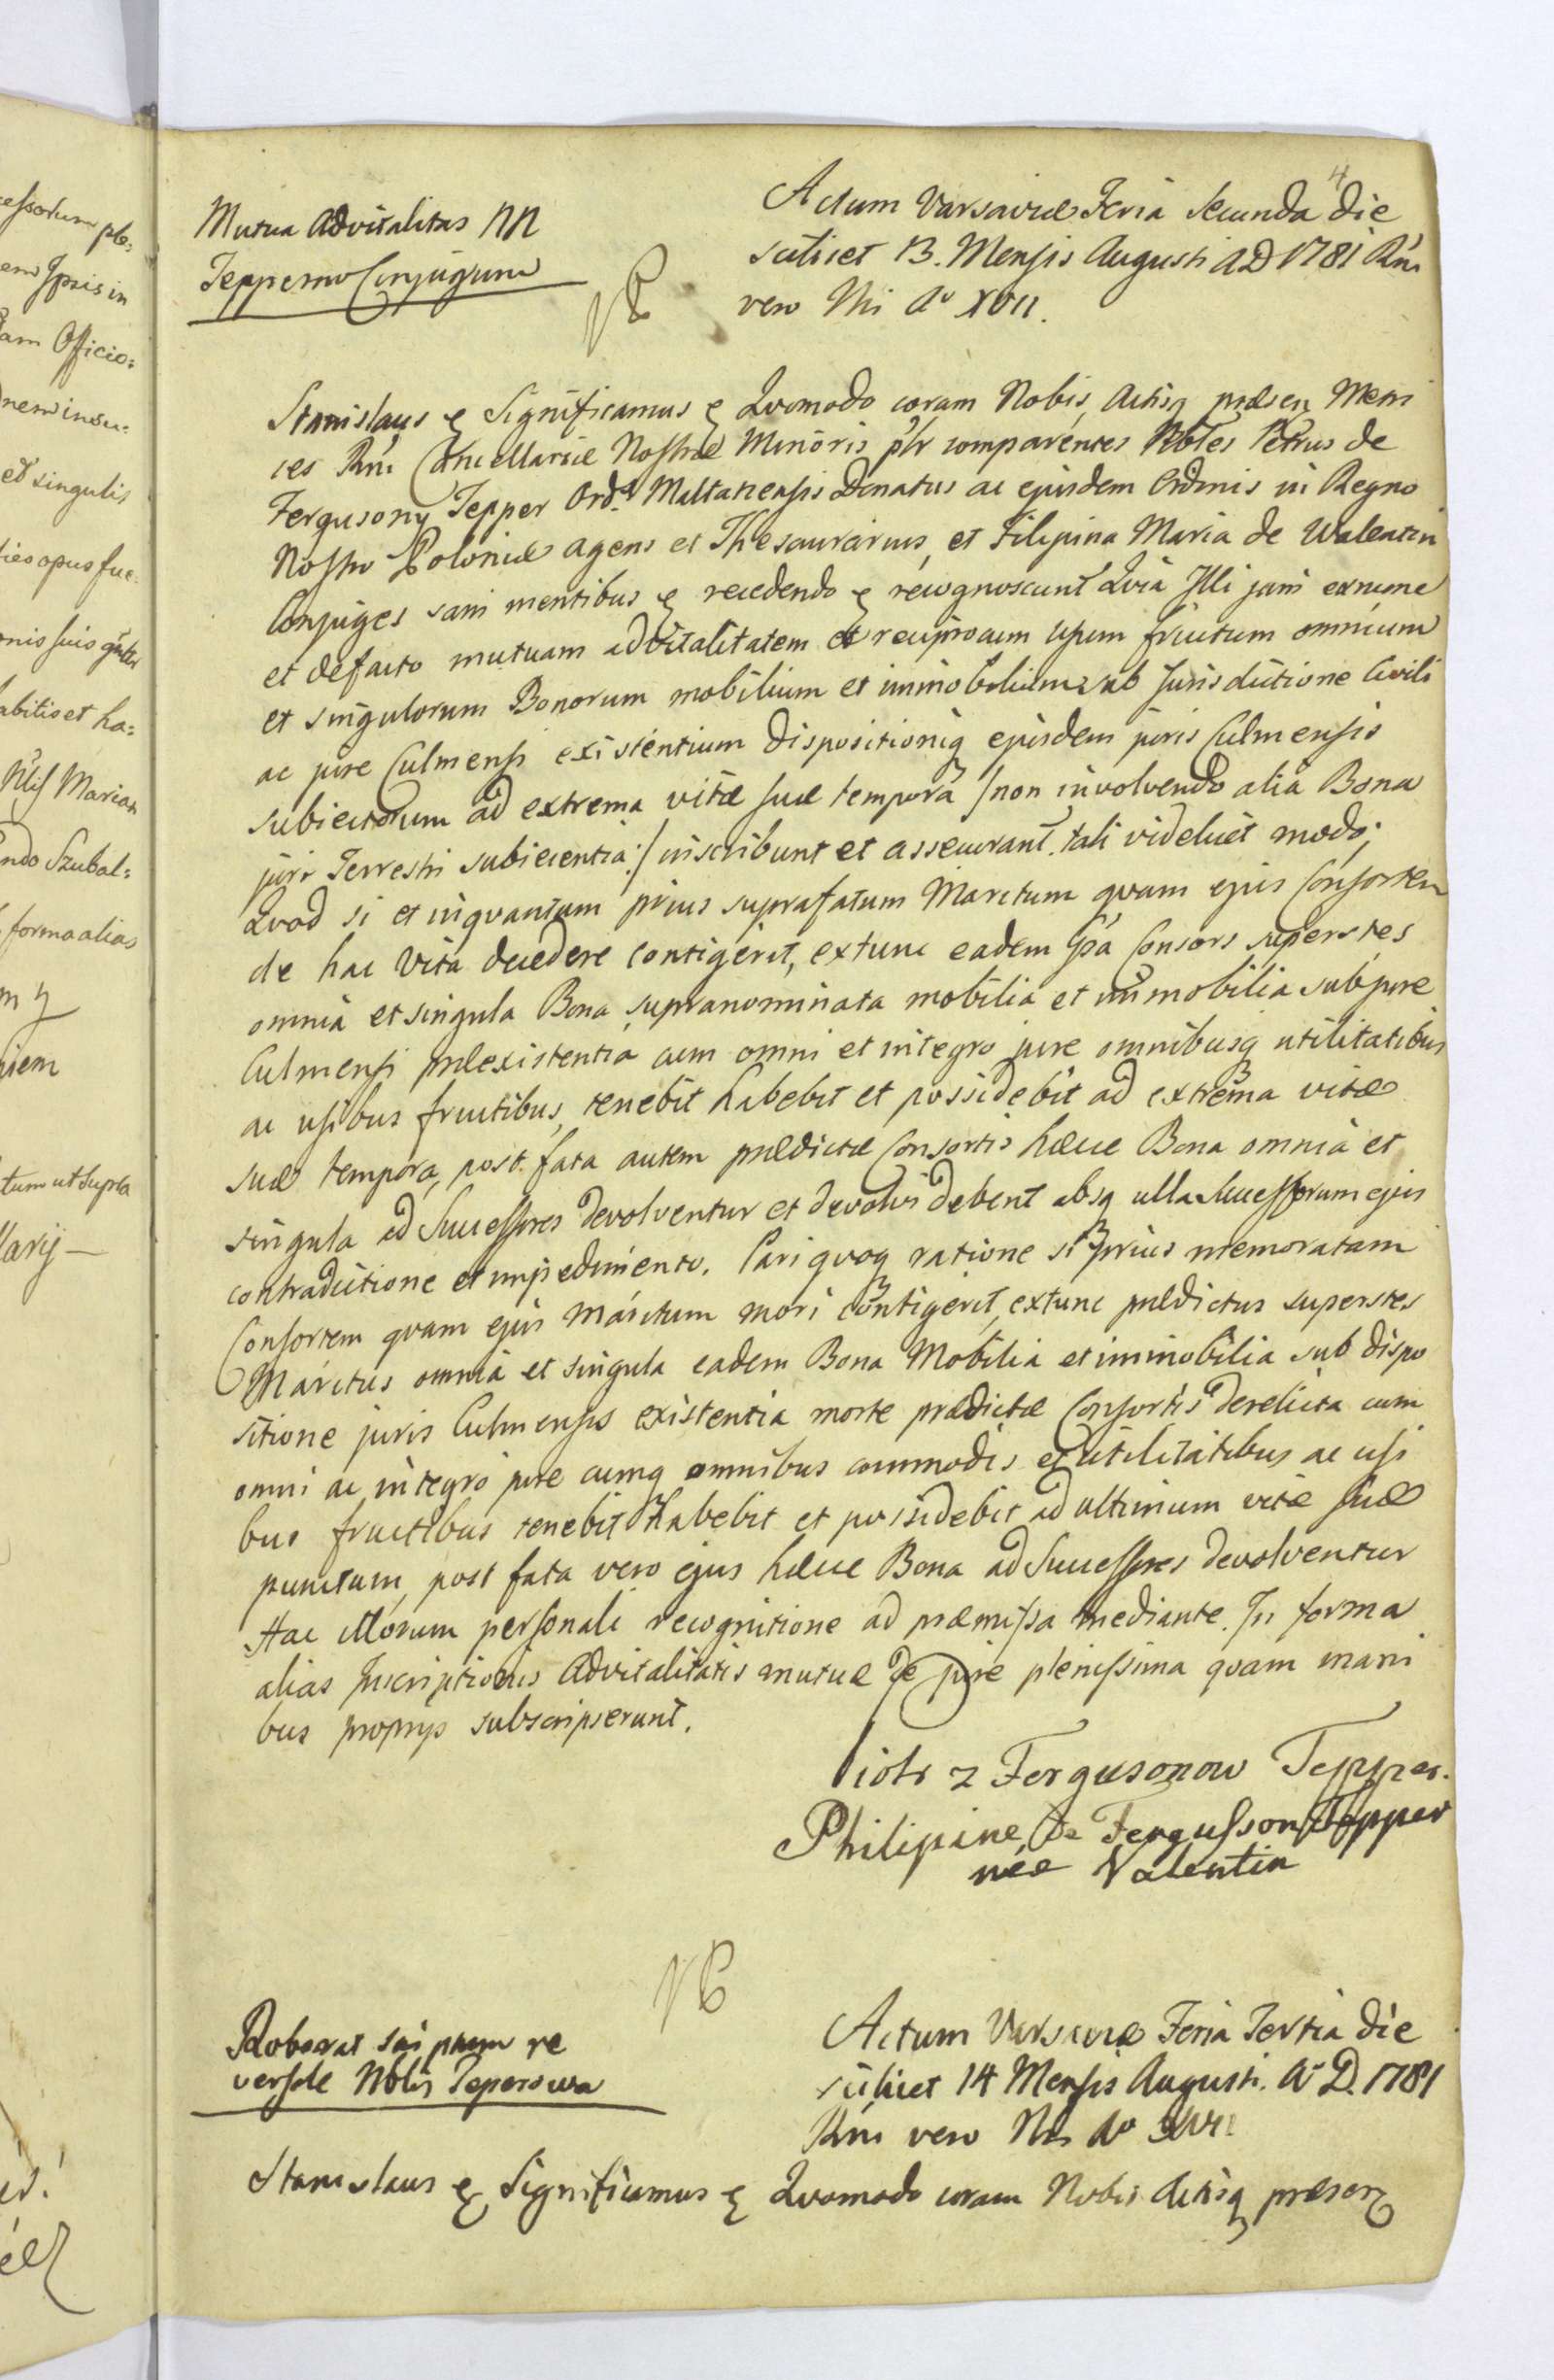 4
Mutua Advitalitas NN
Tepperow Conjugum
Actum Varsaviæ Feria Secunda die
scilicet 13. Mensis Augusti AD 1781 Rni
vero Nri Aº XVII.
NB
Stanislaus & Significamus & Quomodo coram Nobis, Actisq præsen Metri
ces Rni Cancellariæ Nostræ Minoris plr comparentes Nobles Petrus de
Fergusony Tepper Ord. Maltatiensis Donatus ac ejusdem Ordinis in Regno
Nostro Poloniæ Agens et Thesaurarius, et Filipina Maria de Walentin
Conjuges sani mentibus & recedendo & recognoscunt Quia Illi jam exnunc
et defacto mutuam advitalitatem et reciprocum usum fructum omnium
et singulorum Bonorum mobilium et immobilium sub Jurisdictione Civili
ac jure Culmensi existentium dispositioniq ejusdem juris Culmensis
subiectorum ad extrema vitæ suæ tempora /non involvendo alia Bona
juri Terrestri subiecentia:/ inscribunt et assecurant. tali videlicet modo;
Quod si et inquantum prius suprafatum Maritum quam ejus Consortem
de hac Vita decedere contigerit, extunc eadem Ipsa Consors superstes
omnia et singula Bona supranominata mobilia et immobilia sub jure
Culmensi præexistentia cum omni et integro jure omnibusq utilitatibus
ac usibus fructibus, tenebit habebit et possidebit ad extrema vitæ
suæ tempora, post fata autem prædictæ Consortis hæcce Bona omnia et
singula ad Successores devolventur et devolvi debent absq ulla Successorum ejus
contradictione et impedimento. Pari quoq ratione si prius memoratam
Consortem quam ejus Maritum mori contigerit, extunc prædictus superstes
Maritus omnia et singula eadem Bona Mobilia et immobilia sub dispo
sitione juris Culmensis existentia morte prædictæ Consortis derelicta cum
omni ac integro jure cumq omnibus commodis et utilitatibus ac usi
bus fructibus tenebit habebit et possidebit ad ultimum vitæ suæ
punctum, post fata vero ejus hæcce Bona ad Successores devolventur
Hac illorum personali recognitione ad præmissa mediante. In forma
alias Inscriptionis Advitalitatis mutuæ de jure plenissima quam mani
bus proprys subscripserunt.
Piotr z Fergusonow Tepper.
Philipine de Fergusson Tepper
née Valentin
NB
Roborat
versale Noblis Teperowa
Actum Varsaviæ Feria Tertia die
scilicet 14 Mensis Augusti. Aº D. 1781
Rni vero Nri Aº XVII
Stanislaus & Significamus & Quomodo coram Nobis Actisq præsen
em Ipsis in
am Officio:
et singulis
abitis et ha:
Mariam
forma alias
tum ut supra